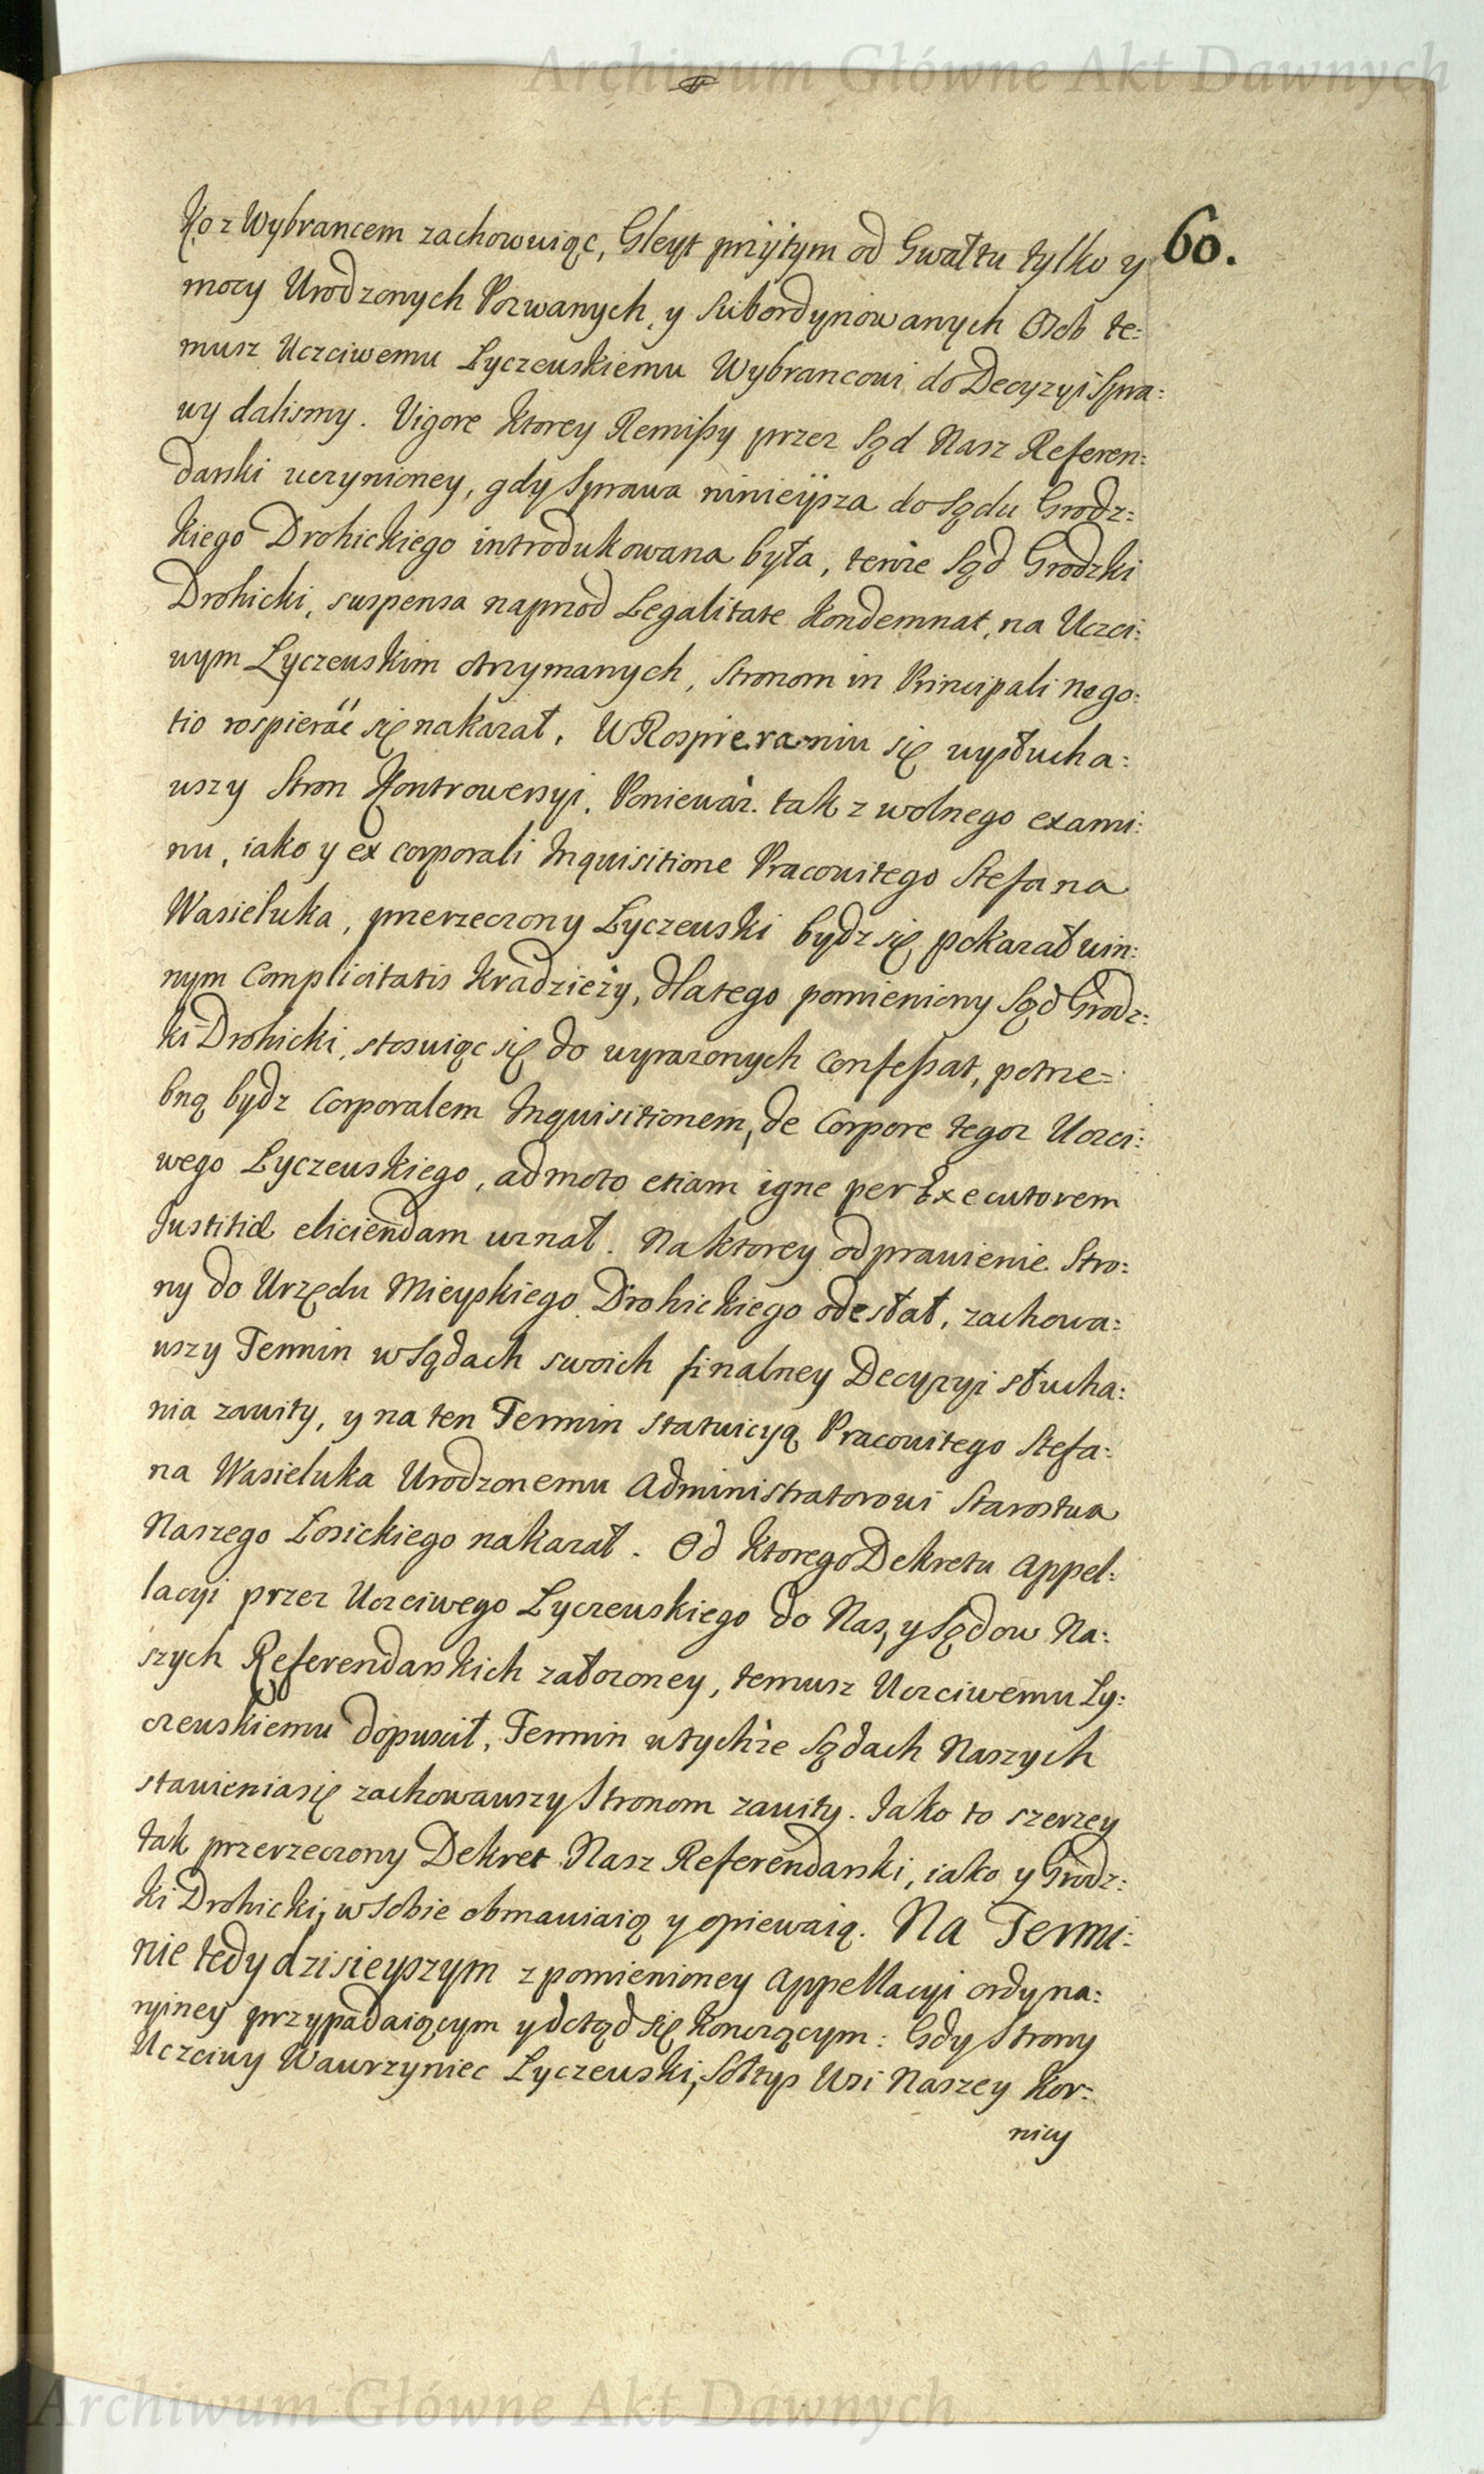 Archiwum Główne Akt Dawnych
60.
ko z Wybrancem zachowuiąc, Gleyt przytym od Gwałtu tylko y
mocy Urodzonych Pozwanych, y subordynowanych Osob te=
musz Uczciwemu Łyczewskiemu Wybrancowi do Decyzyi Spra=
wy dalismy. Vigore ktorey Remissy przez Sąd Nasz Referen=
darski uczynioney, gdy Sprawa ninieysza do Sądu Grodz=
kiego Drohickiego introdukowana była, tenże Sąd Grodzki
Drohicki, suspensa naprzod Legalitate Kondemnat, na Uczci=
wym Łyczewskim otrzymanych, Stronom in Principali nego=
tio rospierać się nakazał. W Rospieraniu się wysłucha=
wszy Stron Kontrowersyi, Ponieważ tak z wolnego exami=
nu, iako y ex corporali Inquisitione Pracowitego Stefana
Wasieluka, przerzeczony Łyczewski bydz się pokazał win=
nym Complicitatis kradzieży, dlatego pomieniony Sąd Grodz=
ki Drohicki, stosuiąc się do wyrazonych Confessat, potrze=
bną bydz Corporalem Inquisitionem, de Corpore tegoz Uczci=
wego Łyczewskiego, admoto etiam igne per Executorem
Justitiæ eliciendam uznał. Na ktorey odprawienie Stro=
ny do Urzędu Mieyskiego Drohickiego odesłał, zachowa=
wszy Termin w Sądach swoich finalney Decyzyi słucha=
nia zawity, y na ten Termin statuicyą Pracowitego Stefa=
na Wasieluka Urodzonemu Administratorowi Starostwa
Naszego Łosickiego nakazał. Od ktorego Dekretu Appel=
lacyi przez Uczciwego Łyczewskiego do Nas, y Sądow Na=
szych Referendarskich załozoney, temusz Uczciwemu Ły=
czewskiemu dopuscił, Termin w tychże Sądach Naszych
stawienia się zachowawszy Stronom zawity. Jako to szerzey
tak przerzeczony Dekret Nasz Referendarski, iako y Grodz=
ki Drohicki, w sobie obmawiaią y opiewaią. Na Termi=
nie tedy dzisieyszym z pomienioney Appellacyi ordyna=
ryiney przypadaiącym y dotąd się konczącym: Gdy Strony
Uczciwy Wawrzyniec Łyczewski, Sołtys Wsi Naszey Kor=
nicy
Archiwum Główne Akt Dawnych